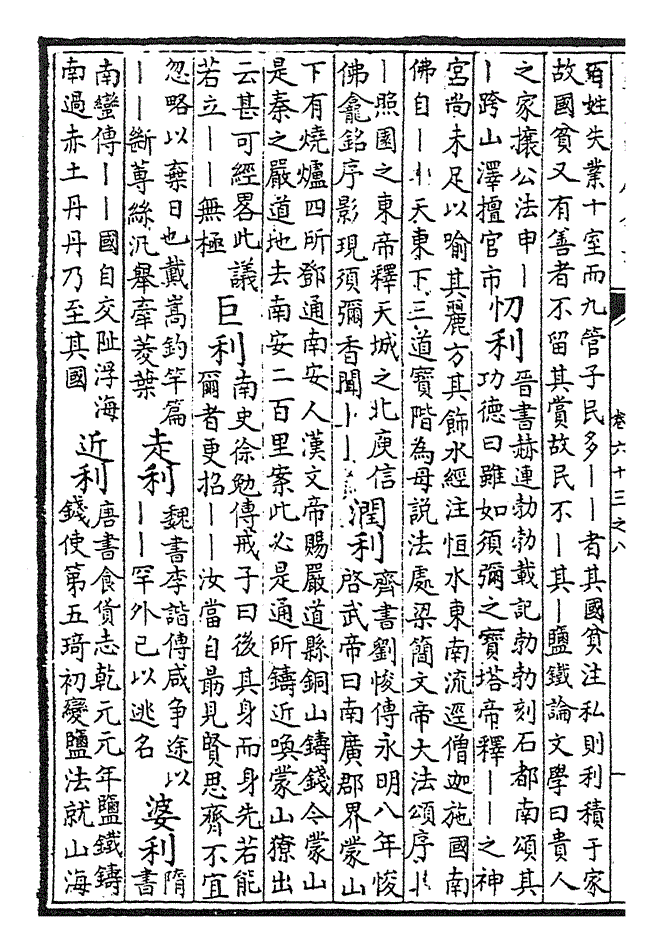 百姓失業十室而九管子民多｜｜者其國貧注私則利積于家
故國貧又有善者不留其賞故民不｜其｜鹽鐵論文學曰貴人
之家攘公法申｜
｜跨山澤擅官市
忉利
晉書赫連勃勃載記勃勃刻石都南頌其
功德曰雖如須彌之寶塔帝釋｜｜之神
宮尚未足以喻其麗方其飾水經注恒水東南流逕僧迦施國南
佛自｜｜天東下三道寶階為母說法處梁簡文帝大法頌序｜
｜照園之東帝釋天城之北庾信
佛龕銘序影現須彌香聞｜｜
潤利
齊書劉悛傳永明八年悛
啓武帝曰南廣郡界蒙山
下有燒爐四所鄧通南安人漢文帝賜嚴道縣銅山鑄錢今蒙山
是秦之嚴道地去南安二百里案此必是通所鑄近喚蒙山獠出
云甚可經畧此議
若立｜｜無極
巨利
南史徐勉傳戒子曰後其身而身先若能
爾者更招｜｜汝當自勗見賢思齊不宜
忽略以棄日也戴嵩釣竿篇
｜｜斷蓴絲汎舉牽菱葉
走利
魏書李諧傳咸争途以
｜｜罕外已以逃名
婆利
隋
書
南蠻傳｜｜國自交趾浮海
南過赤土丹丹乃至其國
近利
唐書食貨志乾元元年鹽鐵鑄
錢使第五琦初變鹽法就山海
卷六十三之八
一